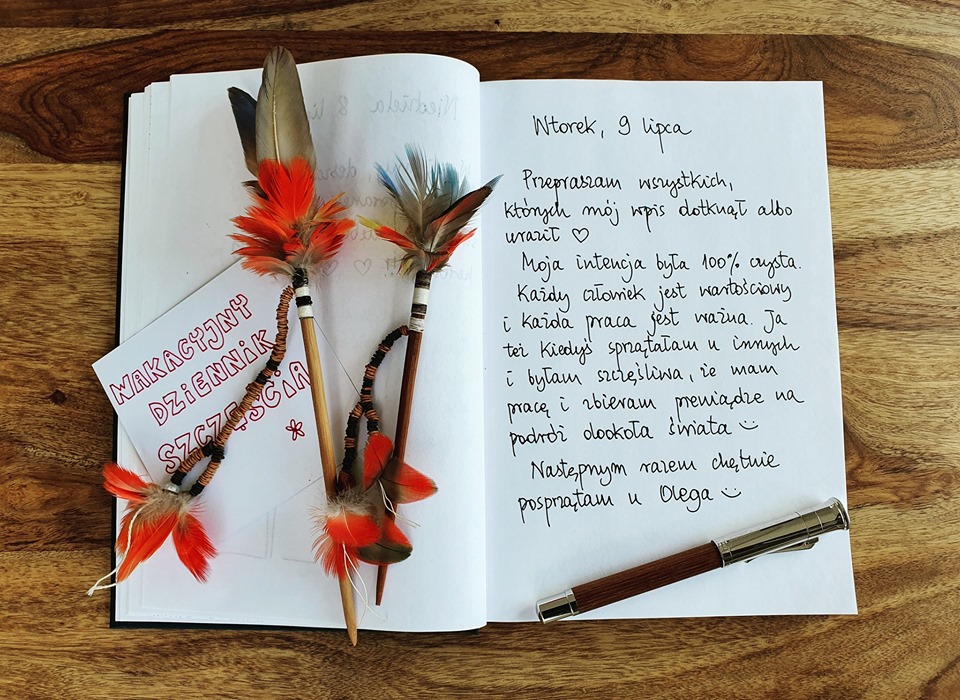 WAKACYJNY
DZIENNIK
SZCZĘŚCIA
*
Wtorek, 9 lipca
Przepraszam wszystkich,
których mój wpis dotknął albo
uraził ♡
Moja intencja była 100% czysta.
Każdy człowiek jest wartościowy
i każda praca jest ważna. Ja
też kiedyś sprzątałam u innych
i byłam szczęśliwa, że mam
pracę i zbieram pieniądze na
podróż dookoła świata :)
Następnym razem chętnie
posprzątam u Olega :)